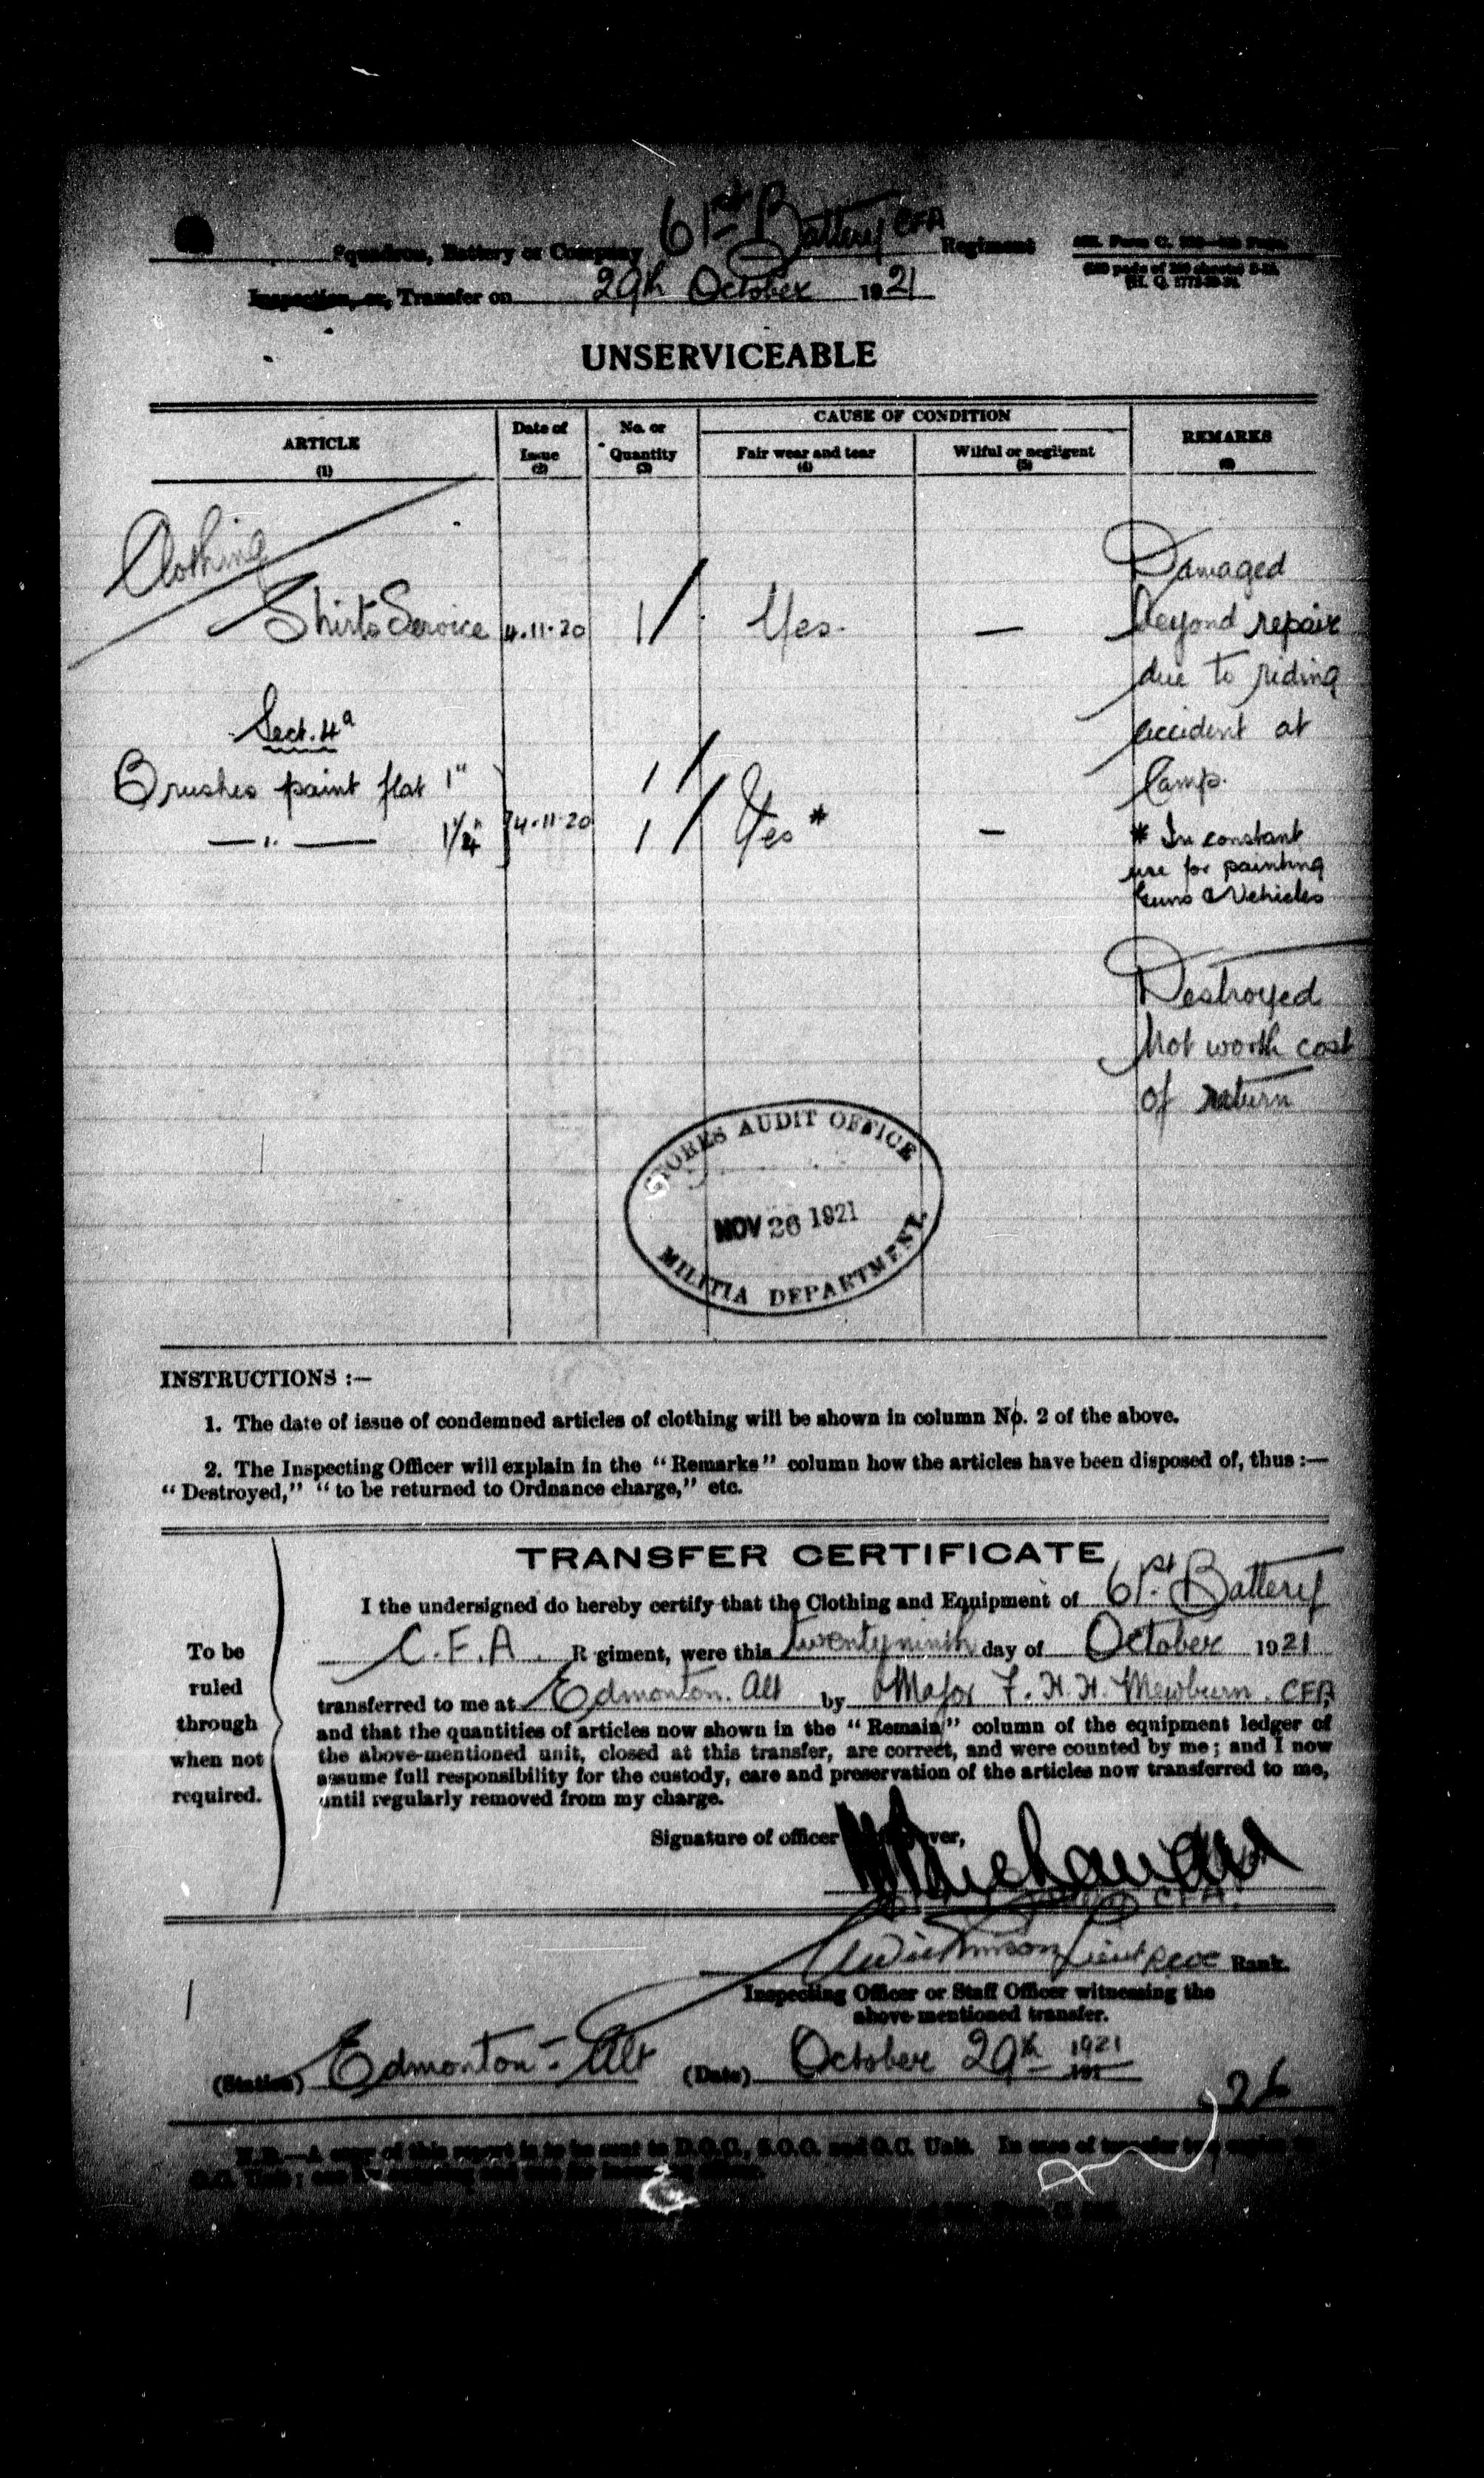 61st Battery CFA
Squadron, Battery or Company Regiment
Inspection, or, Transfer on 29th October 1921
UNSERVICEABLE
ARTICLE (1) Date of Issue (2) No. or Quantity (3) CAUSE OF CONDITION REMARKS (6)
Fair wear and tear (4) Wilful or negligent (5)
Clothing
Shirts Service 4.11.20 1 Yes. —
Damaged
beyond repair
due to riding
accident at
Camp.
Sect. 4a
Brushes paint flat 1" 1
— " — 1 1/2" 4.11.20 1 Yes * —
* In constant
use for painting
Guns & Vehicles
Destroyed
Not worth cost
of return
STORES AUDIT OFFICE
NOV 26 1921
MILITIA DEPARTMENT
INSTRUCTIONS :—
1. The date of issue of condemned articles of clothing will be shown in column No. 2 of the above.
2. The Inspecting Officer will explain in the "Remarks" column how the articles have been disposed of, thus :—
"Destroyed," "to be returned to Ordnance charge," etc.
TRANSFER CERTIFICATE
To be
ruled
through
when not
required.
I the undersigned do hereby certify that the Clothing and Equipment of 61st. Battery
C.F.A. R giment, were this twentyninth day of October 1921
transferred to me at Edmonton. Alt by Major F. H. H. Mewburn. CFA
and that the quantities of articles now shown in the "Remain" column of the equipment ledger of
the above-mentioned unit, closed at this transfer, are correct, and were counted by me; and I now
assume full responsibility for the custody, care and preservation of the articles now transferred to me,
until regularly removed from my charge.
Signature of officer
CFA.
Lieut RCOC Rank.
Inspecting Officer or Staff Officer witnessing the
above-mentioned transfer.
(Station) Edmonton - Alt (Date) October 29th 1921
26
N.B.—A copy of this report is to be sent to D.O.C., S.O.O. and O.C. Unit. In case of transfer